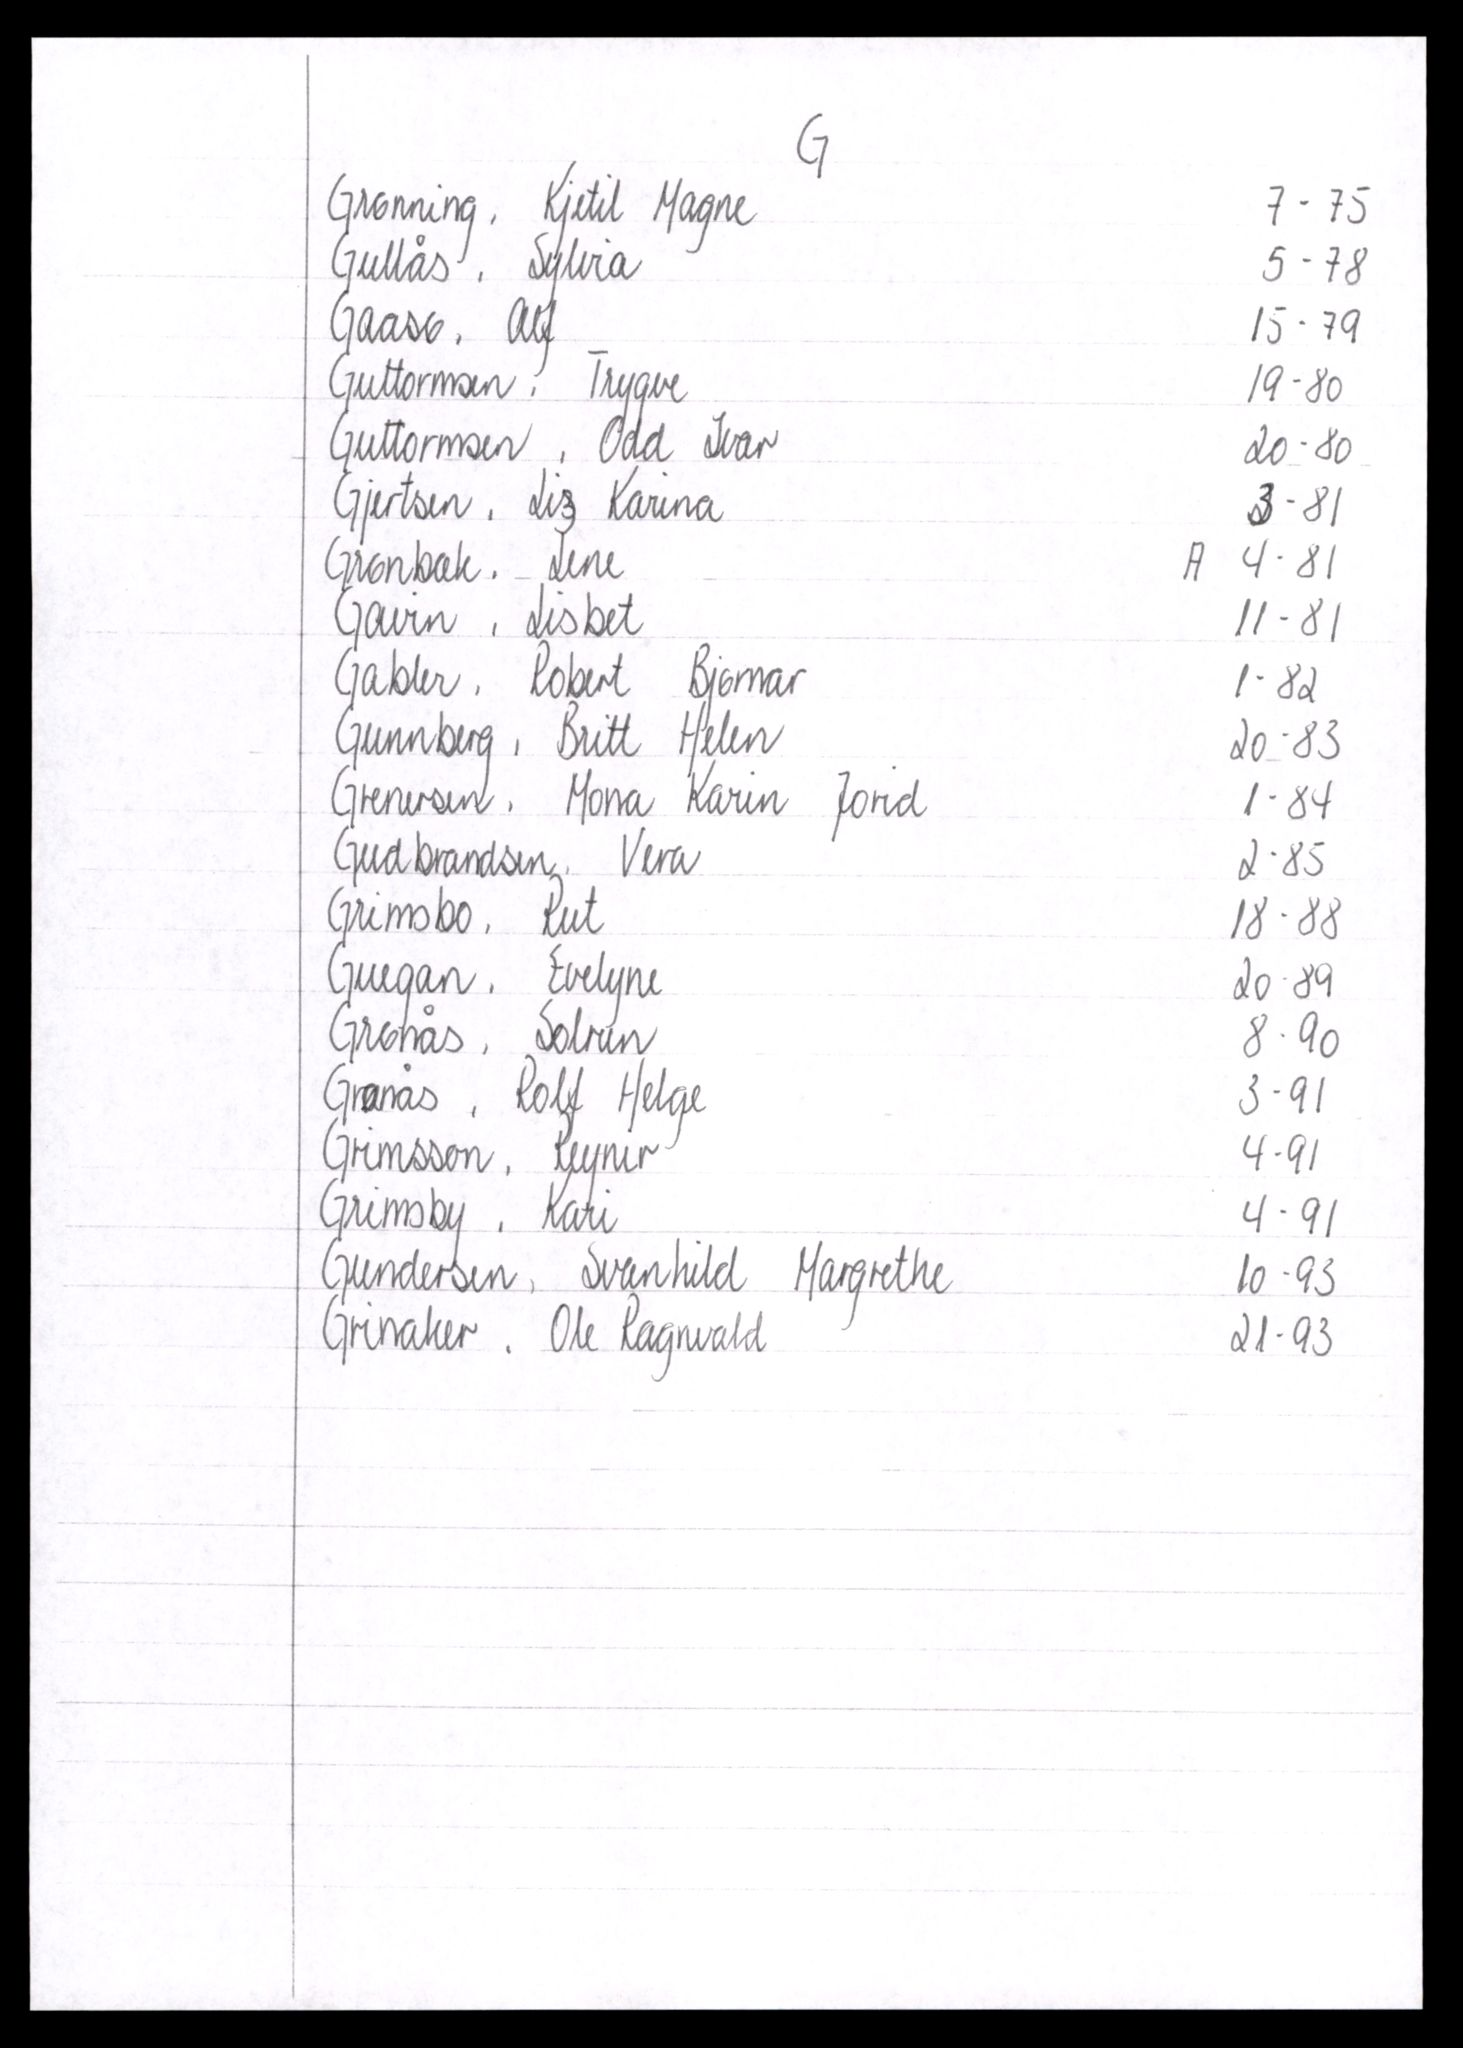 G
Grønning, Kjetil Magne 7-75
Gullås, Sylvia 5-78
Gaasø, Alf 15-79
Guttormsen, Trygve 19-80
Guttormsen, Odd Ivar 20-80
Gjertsen, Liz Karina 3-81
Grønbæk, Lene A 4-81
Gavin, Lisbet 11-81
Gabler, Robert Bjørnar 1-82
Gunnberg, Britt Helen 20-83
Grenersen, Mona Karin Jorid 1-84
Gudbrandsen, Vera 2-85
Grimsbo, Rut 18-88
Guegan, Evelyne 20-89
Grønås, Solrun 8-90
Granås, Rolf Helge 3-91
Grimsson, Reynir 4-91
Grimsby, Kari 4-91
Gundersen, Svanhild Margrethe 10-93
Grinaker, Ole Ragnvald 21-93